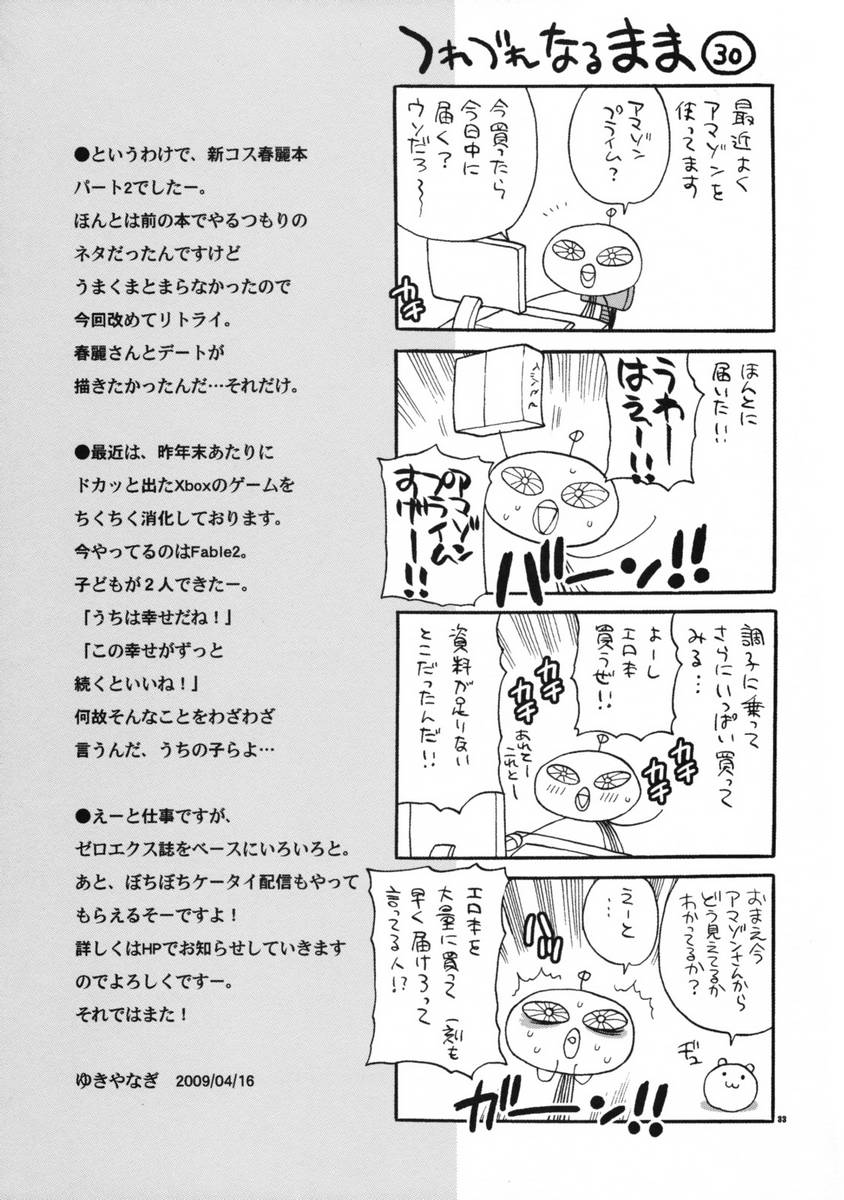 つれづれなるまま 30
最近よく
アマゾンを
使ってます
アマゾン
プライム？
今買ったら
今日中に
届く？
ウソだろ〜
カチ
ほんとに
届いた！！
うわー
はえー！！
アマゾン
プライム
すげー！！
バーン！！
調子に乗って
さらにいっぱい買って
みる…
よーし
エロ本
買うぜ！！
資料が足りない
とこだったんだ！！
あれとー
これとー
カチ
カチ
カチ
カチ
おまえ今
アマゾンさんから
どう見えてるか
わかってるか？
えーと
…
エロ本を
大量に買って一刻も
早く届けろって
言ってる人！？
ガーン！！
33
●というわけで、新コス春麗本
パート2でしたー。
ほんとは前の本でやるつもりの
ネタだったんですけど
うまくまとまらなかったので
今回改めてリトライ。
春麗さんとデートが
描きたかったんだ…それだけ。
●最近は、昨年末あたりに
ドカッと出たXboxのゲームを
ちくちく消化しております。
今やってるのはFable2。
子どもが２人できたー。
「うちは幸せだね！」
「この幸せがずっと
続くといいね！」
何故そんなことをわざわざ
言うんだ、うちの子らよ…
●えーと仕事ですが、
ゼロエクス誌をベースにいろいろと。
あと、ぼちぼちケータイ配信もやって
もらえるそーですよ！
詳しくはHPでお知らせしていきます
のでよろしくですー。
それではまた！
ゆきやなぎ　2009/04/16